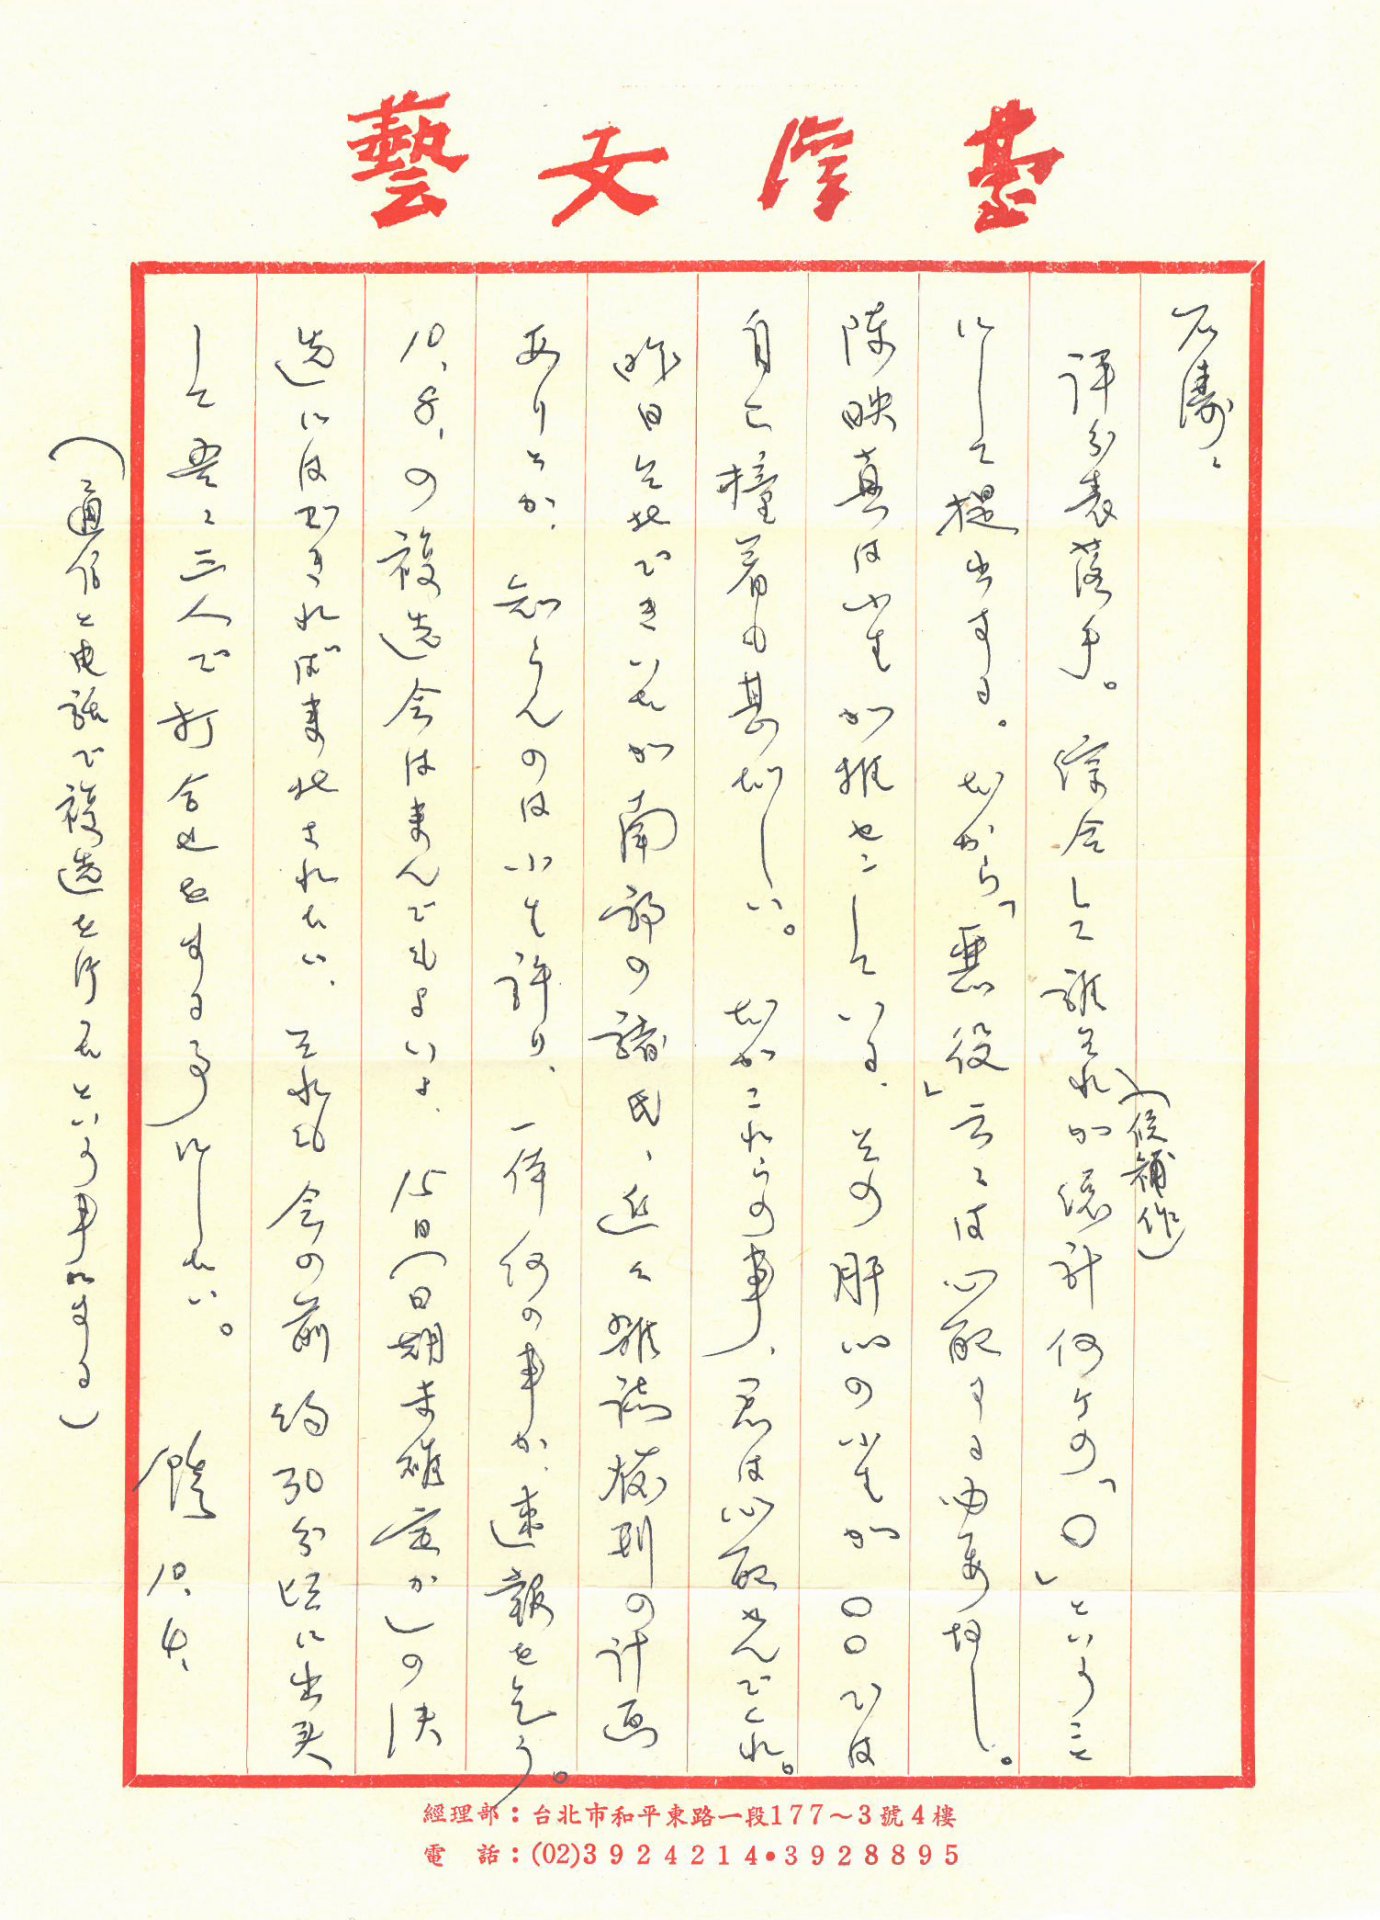 臺灣文藝
石濤：
評分表落手。綜合して誰それが総計何ケの「〇」ということ
(候補作)
にして提出する。だから「悪役」云々は心配する必要なし。
陳映真は小生が推せんしている、その肝心の小生が〇〇では
自己撞着も甚だしい。だがこれらの事、君は心配せんでくれ。
昨日そ北できいたが南部の諸氏、近く雑誌發刊の計画
ありとか、知らんのは小生許り、一体何の事か、速報を乞う。
10、8、の複選会はまんでもよいよ、15日(日期未確定か)の決
選には出きれば来北されたい、それも会の前約30分頃に出来
して吾々三人で打合せをする事にしたい。 饒 10、4、
(通信と電話で複選を行ったという事にする)
經理部：台北市和平東路一段177～3號4樓
電　話：(02)3924214•3928895